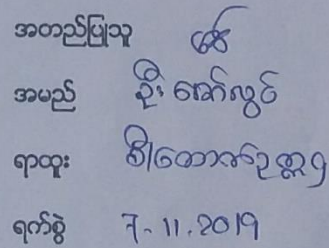 အတည်ပြုသူ
အမည် ဦးအော်လွင်
ရာထူး စီ/ထောက်ဥက္ကဌ
ရက်စွဲ 7-11.2019